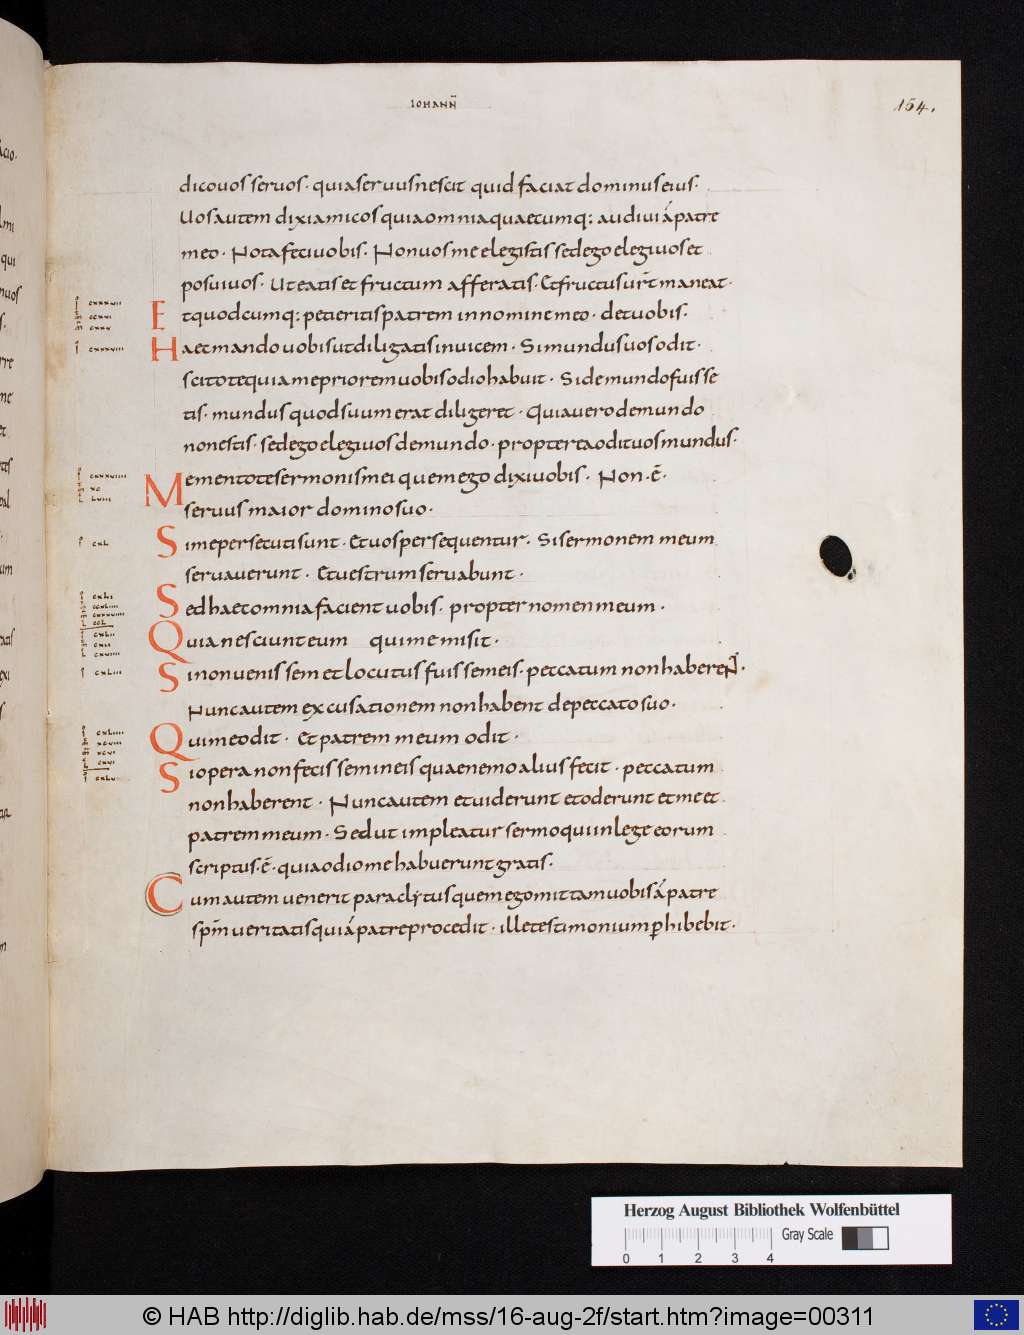 IOHANN̄
154.
dico uos seruos · quia seruus nescit quid faciat dominus eius ·
Uos autem dixi amicos quia omnia quaecumq; audiui á patre
meo · Nota feci uobis · Non uos me elegistis sed ego elegi uos et
posui uos · Ut eatis et fructum afferatis · Et fructus ur̄t maneat ·
Et quodcumq; petieritis patrem in nomine meo · det uobis ·
Haec mando uobis ut diligatis inuicem · Si mundus uos odit ·
scitote quia me priorem uobis odio habuit · Si de mundo fuisse
tis · mundus quod suum erat diligeret · Quia uero de mundo
non estis · sed ego elegi uos de mundo · propterea odit uos mundus ·
Mementote sermonis mei quem ego dixi uobis · Non · ē ·
seruus maior domino suo ·
Si me persecuti sunt · Et uos persequentur · Si sermonem meum
seruauerunt · Et uestrum seruabunt ·
Sed haec omnia facient uobis · propter nomen meum ·
Quia nesciunt eum qui me misit ·
Si non uenissem et locutus fuissem eis · peccatum non haberent ·
Nunc autem excusationem non habent de peccato suo ·
Qui me odit · Et patrem meum odit ·
Si opera non fecissem in eis quae nemo alius fecit · peccatum
non haberent · Nunc autem et uiderunt et oderunt et me et
patrem meum · Sed ut impleatur sermo qui in lege eorum
scriptus · ē · quia odio me habuerunt gratis ·
Cum autem uenerit paraclytus quem ego mittam uobis á patre
sp̄m ueritatis qui á patre procedit · ille testimonium ꝑhibebit ·
Herzog August Bibliothek Wolfenbüttel
Gray Scale
0 1 2 3 4
© HAB http://diglib.hab.de/mss/16-aug-2f/start.htm?image=00311